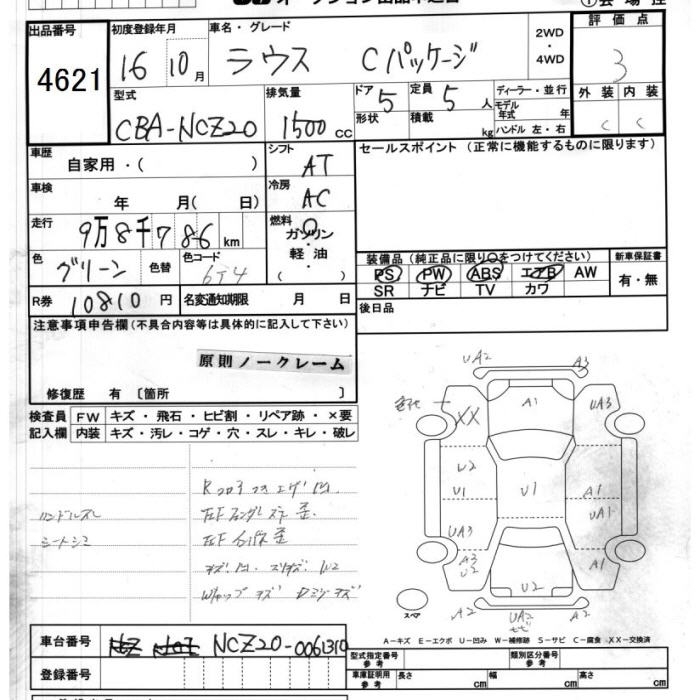 出品番号 4621
初度登録年月 16 10月
車名・グレード ラウス Cパッケージ
2WD・4WD
評価点 3
外装 C 内装 C
型式 CBA-NCZ20
排気量 1500cc
ドア 5 形状
定員 5人 積載 kg
ディーラー・並行
モデル年式 年
ハンドル 左・右
車歴 自家用・( )
シフト AT
セールスポイント (正常に機能するものに限ります)
車検 年 月( 日)
冷房 AC
走行 9万8千786km
燃料 ガソリン・軽油・( )
色 グリーン 色替 色コード 6T4
装備品 (純正品に限り○をつけてください)
新車保証書 有・無
PS PW ABS エアB AW
SR ナビ TV カワ
R券 10810円
名変通知期限 月 日
後日品
注意事項申告欄(不具合内容等は具体的に記入して下さい)
原則ノークレーム
修復歴 有 [箇所 ]
検査員記入欄
FW キズ・飛石・ヒビ割・リペア跡・×要
内装 キズ・汚レ・コゲ・穴・スレ・キレ・破レ
ハンドルスレ
シートシミ
UA2
A3
XX
A1
UA3
U2
U1
U1
A1
UA1
UA3
A3
U2
A1
U2
A2
UA2
A2
スペア
A-キズ E-エクボ U-凹み W-補修跡 S-サビ C-腐食 XX-交換済
車台番号 NCZ20-0061310
登録番号
型式指定番号 参考
類別区分番号 参考
車庫証明用 参考 長さ cm 幅 cm 高さ cm